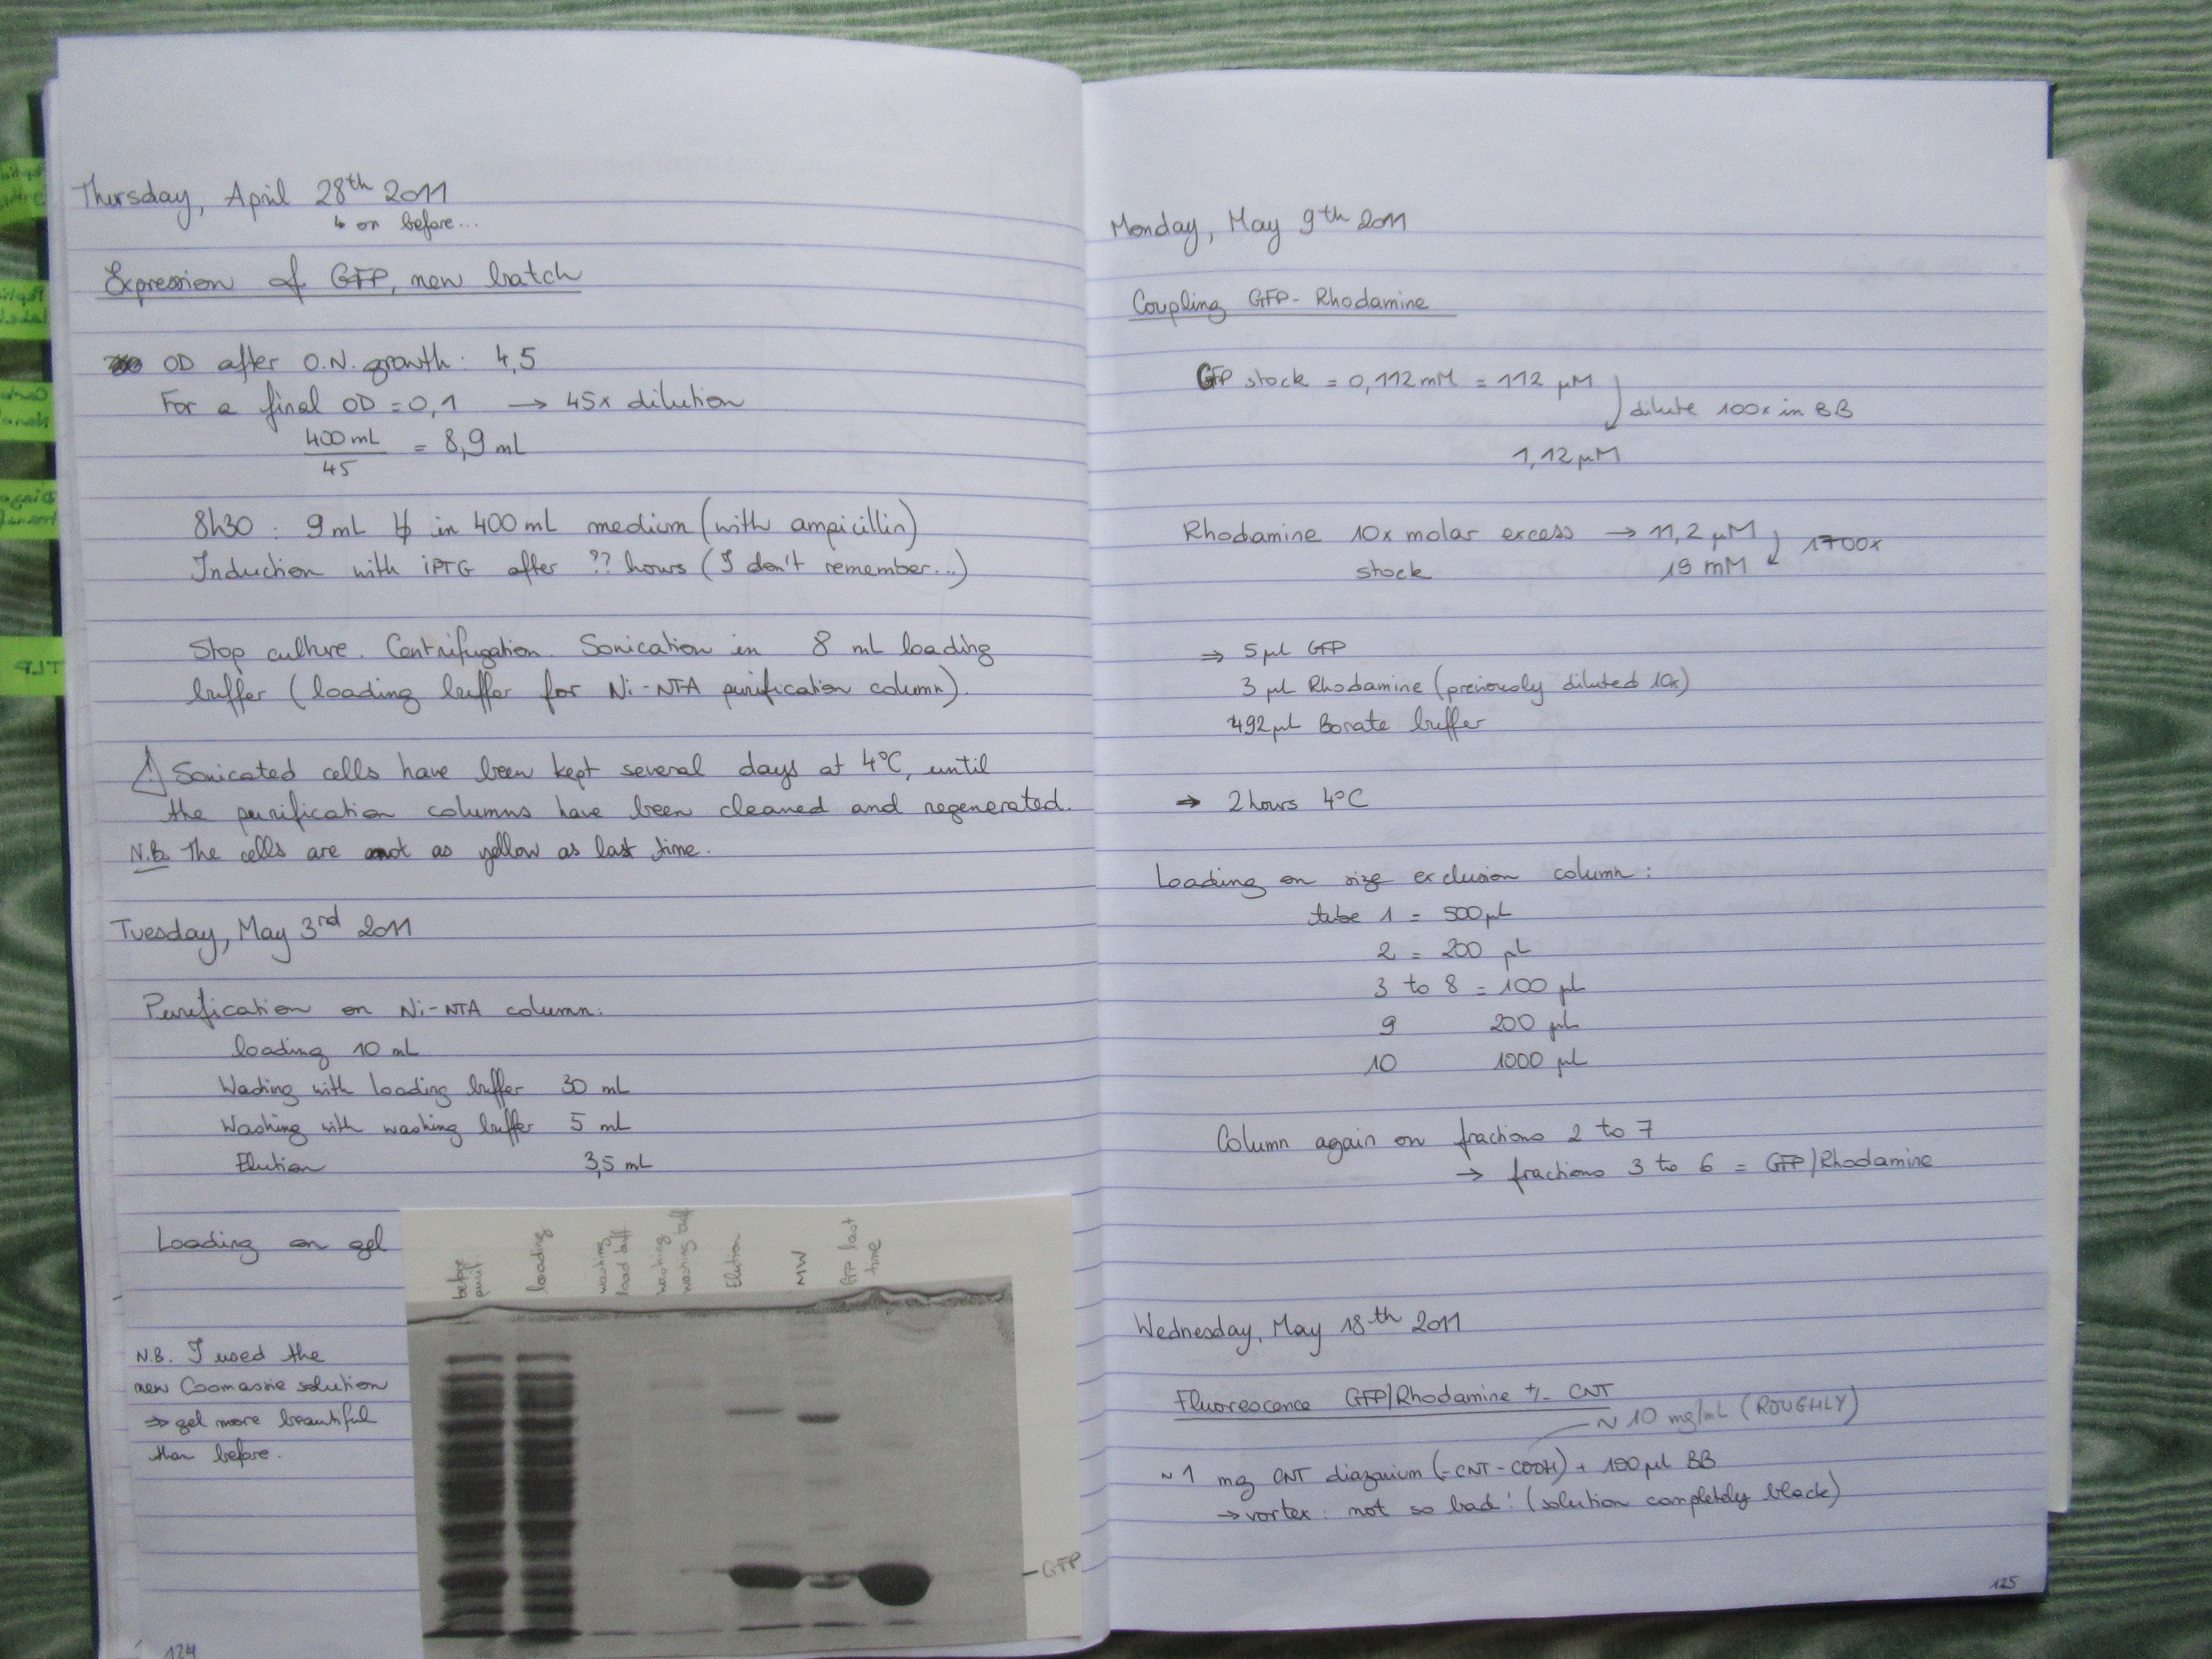 Thursday, April 28th 2011
↳ or before...
Expression of GFP, new batch
OD after O.N. growth: 4,5
For a final OD = 0,1 → 45x dilution
400 mL
45
= 8,9 mL
8h30 : 9 mL in 400 mL medium (with ampicillin)
Induction with iPTG after ?? hours (I don't remember...)
Stop culture. Centrifugation. Sonication in 8 mL loading
buffer (loading buffer for Ni-NTA purification column).
⚠ Sonicated cells have been kept several days at 4°C, until
the purification columns have been cleaned and regenerated.
N.B. The cells are not as yellow as last time.
Tuesday, May 3rd 2011
Purification on Ni-NTA column:
loading 10 mL
Washing with loading buffer 30 mL
Washing with washing buffer 5 mL
Elution 3,5 mL
Loading on gel
before purif.
loading
washing load buff
washing washing buff
Elution
MW
GFP last time
N.B. I used the
new Coomassie solution
⇒ gel more beautiful
than before.
- GFP
124
Monday, May 9th 2011
Coupling GFP - Rhodamine
GFP stock = 0,112 mM = 112 µM
dilute 100x in BB
1,12 µM
Rhodamine 10x molar excess → 11,2 µM
1700x
stock 19 mM
⇒ 5 µL GFP
3 µL Rhodamine (previously diluted 10x)
492 µL Borate buffer
→ 2 hours 4°C
Loading on size exclusion column:
tube 1 = 500 µL
2 = 200 µL
3 to 8 = 100 µL
9 200 µL
10 1000 µL
Column again on fractions 2 to 7
→ fractions 3 to 6 = GFP/Rhodamine
Wednesday, May 18th 2011
Fluorescence GFP/Rhodamine +/- CNT
~ 10 mg/mL (ROUGHLY)
~ 1 mg CNT diazonium (=CNT-COOH) + 100 µL BB
→ vortex : not so bad! (solution completely black)
125